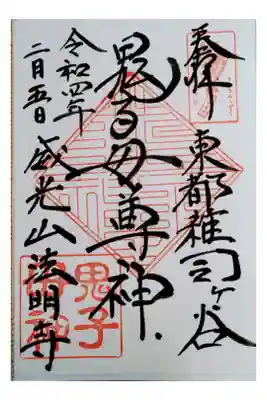 奉拝
東都雑司ヶ谷
鬼子母尊神
令和四年
二月五日
威光山法明寺
鬼子
母神